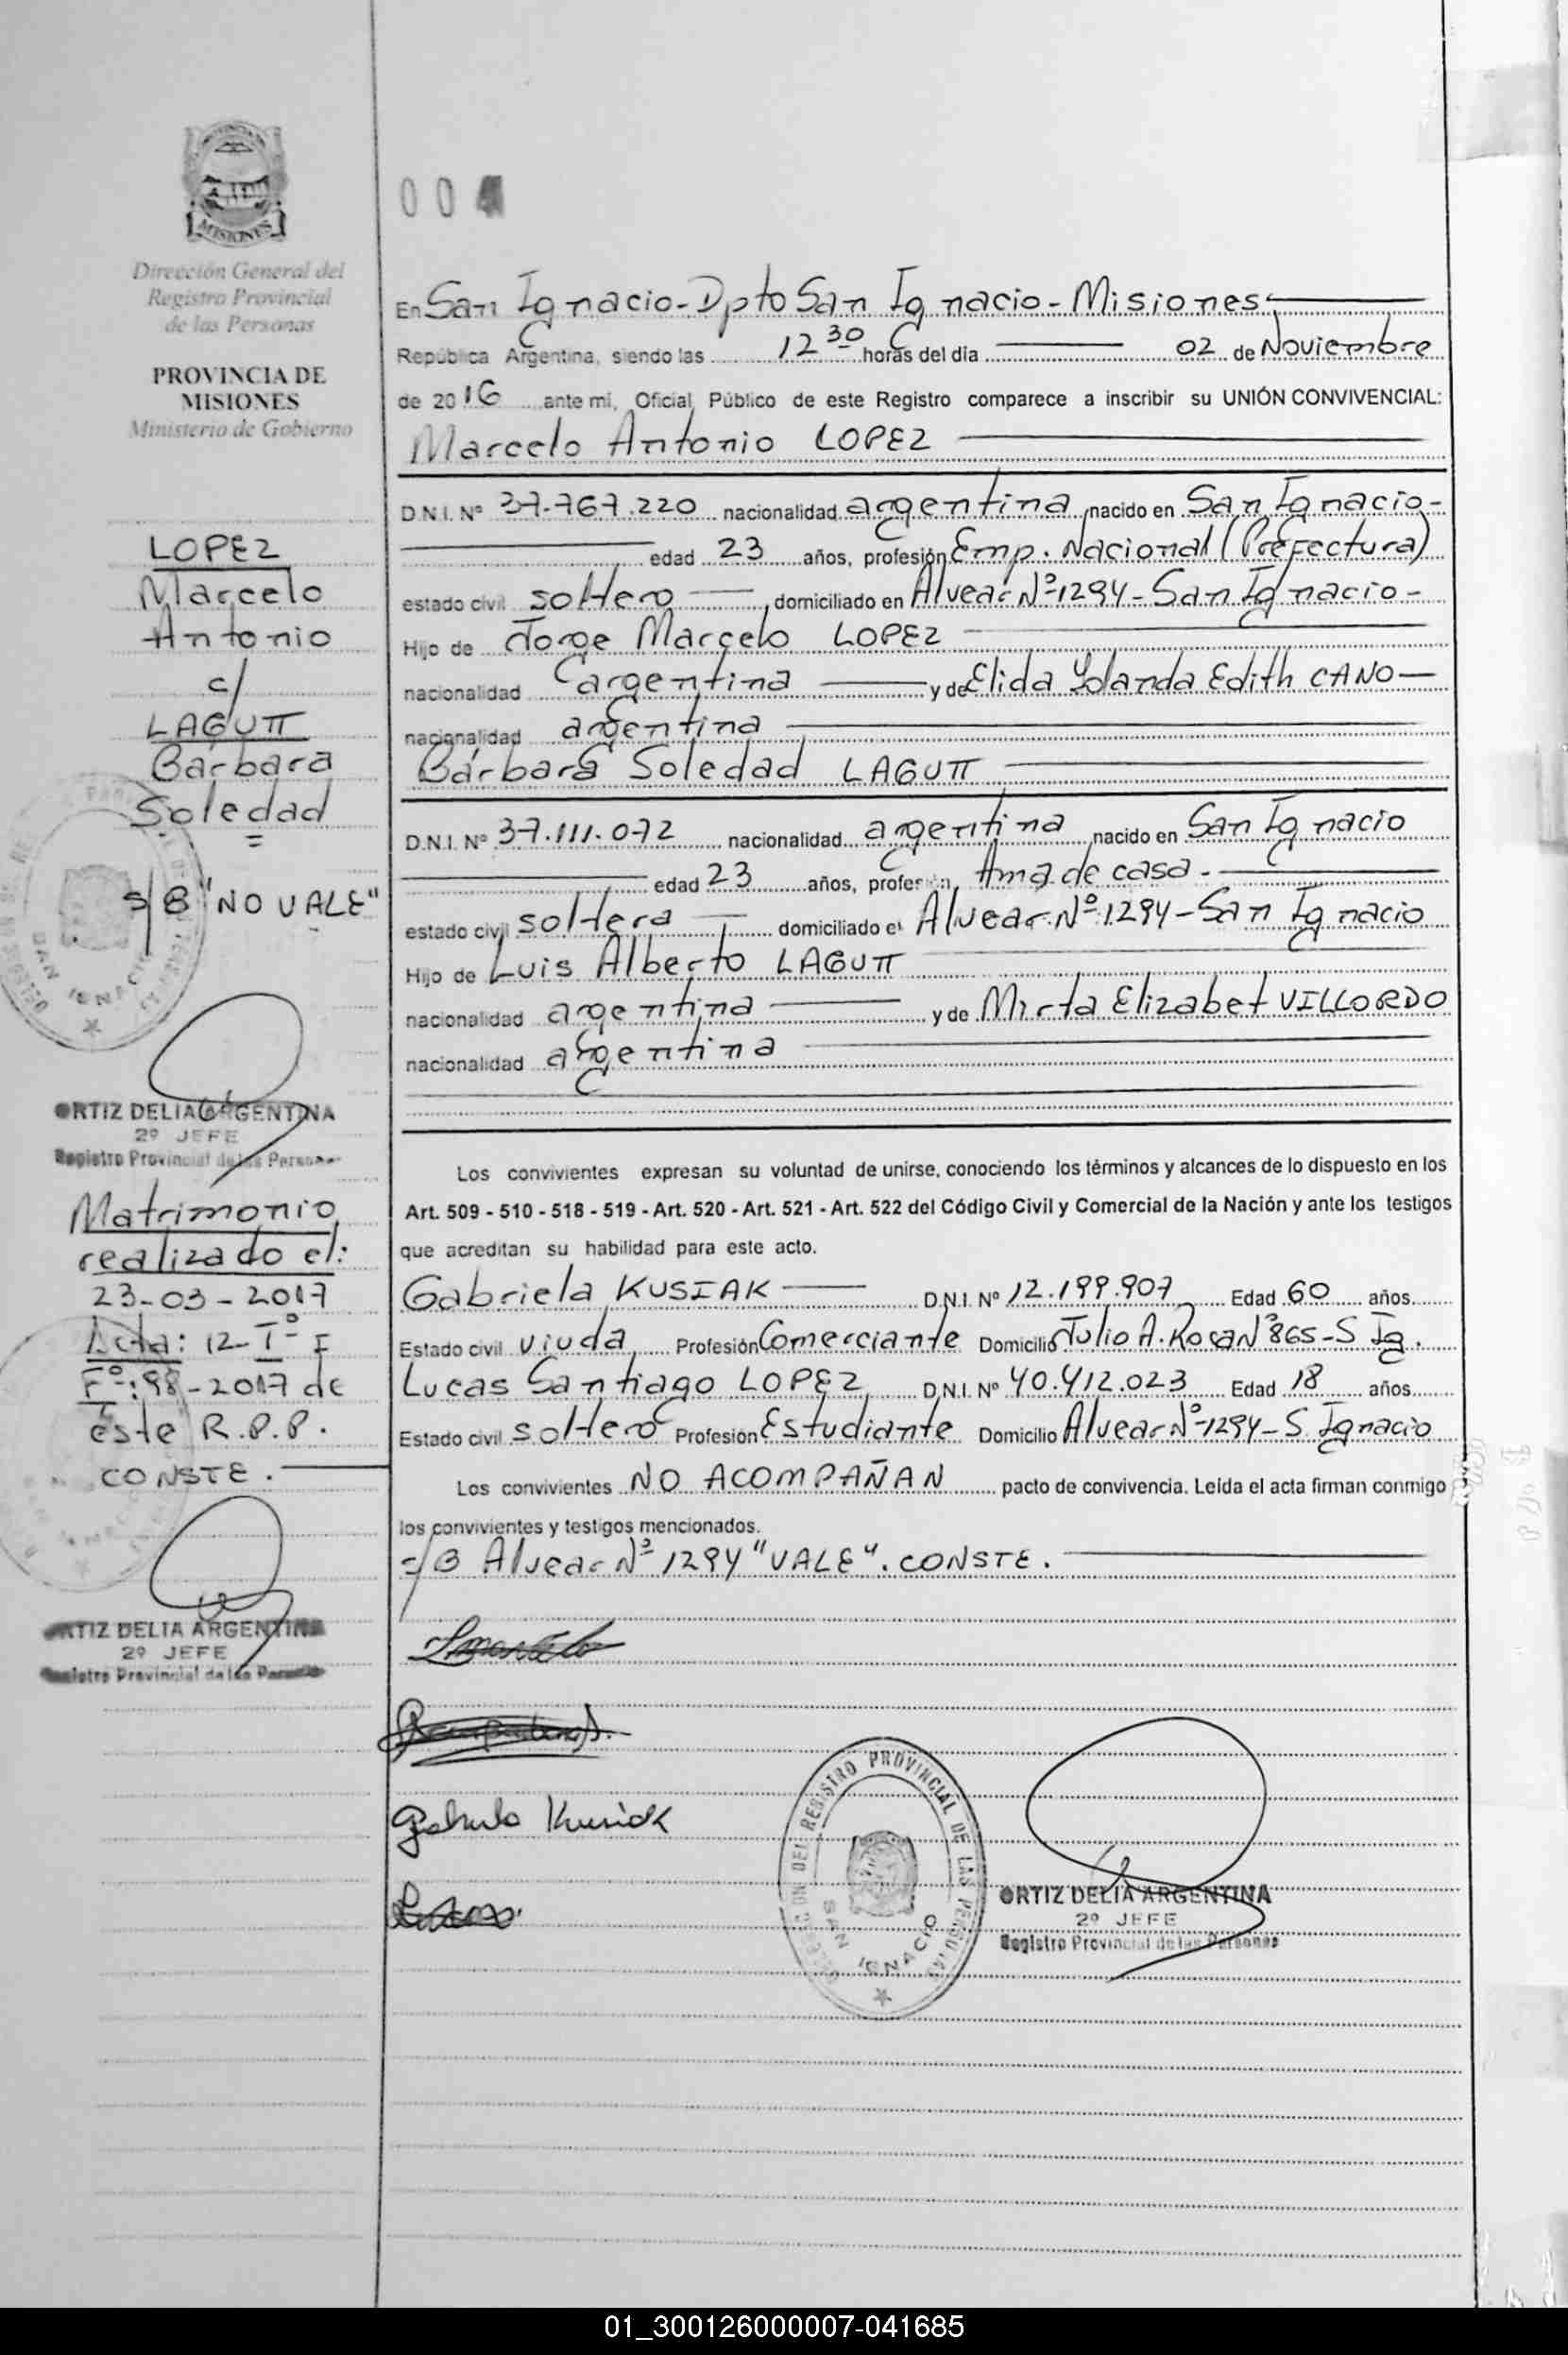 MISIONES
Dirección General del
Registro Provincial
de las Personas
PROVINCIA DE
MISIONES
Ministerio de Gobierno
LOPEZ
Marcelo
Antonio
c/
LAGUTT
Bárbara
Soledad
=
s/B "NO VALE"
ORTIZ DELIA ARGENTINA
2º JEFE
Registro Provincial de las Personas
Matrimonio
realizado el:
23-03-2017
Acta: 12-Tº I
Fº: 98-2017 de
este R.P.P.
CONSTE.
ORTIZ DELIA ARGENTINA
2º JEFE
Registro Provincial de las Personas
00
En San Ignacio-Dpto San Ignacio-Misiones
República Argentina, siendo las 12 30 horas del día 02 de Noviembre
de 2016 ante mi, Oficial Público de este Registro comparece a inscribir su UNIÓN CONVIVENCIAL:
Marcelo Antonio LOPEZ
D.N.I. Nº 37.767.220 nacionalidad argentina nacido en San Ignacio-
edad 23 años, profesión Emp. Nacional (Prefectura)
estado civil soltero domiciliado en Alvear Nº 1294-San Ignacio-
Hijo de Jorge Marcelo LOPEZ
nacionalidad argentina y de Elida Yolanda Edith CANO
nacionalidad argentina
Bárbara Soledad LAGUTT
D.N.I. Nº 37.111.072 nacionalidad argentina nacido en San Ignacio
edad 23 años, profesión Ama de casa.
estado civil soltera domiciliado en Alvear Nº 1294-San Ignacio
Hijo de Luis Alberto LAGUTT
nacionalidad argentina y de Mirta Elizabet VILLORDO
nacionalidad argentina
Los convivientes expresan su voluntad de unirse, conociendo los términos y alcances de lo dispuesto en los
Art. 509 - 510 - 518 - 519 - Art. 520 - Art. 521 - Art. 522 del Código Civil y Comercial de la Nación y ante los testigos
que acreditan su habilidad para este acto.
Gabriela KUSIAK D.N.I. Nº 12.199.907 Edad 60 años
Estado civil viuda Profesión Comerciante Domicilio Julio A. Roca Nº 865-S Ig.
Lucas Santiago LOPEZ D.N.I. Nº 40.412.023 Edad 18 años
Estado civil soltero Profesión Estudiante Domicilio Alvear Nº 1294-S. Ignacio
Los convivientes NO ACOMPAÑAN pacto de convivencia. Leída el acta firman conmigo
los convivientes y testigos mencionados.
s/B Alvear Nº 1294 "VALE". CONSTE.
DELEGACION DEL REGISTRO PROVINCIAL DE LAS PERSONAS
SAN IGNACIO
ORTIZ DELIA ARGENTINA
2º JEFE
Registro Provincial de las Personas
01_300126000007-041685